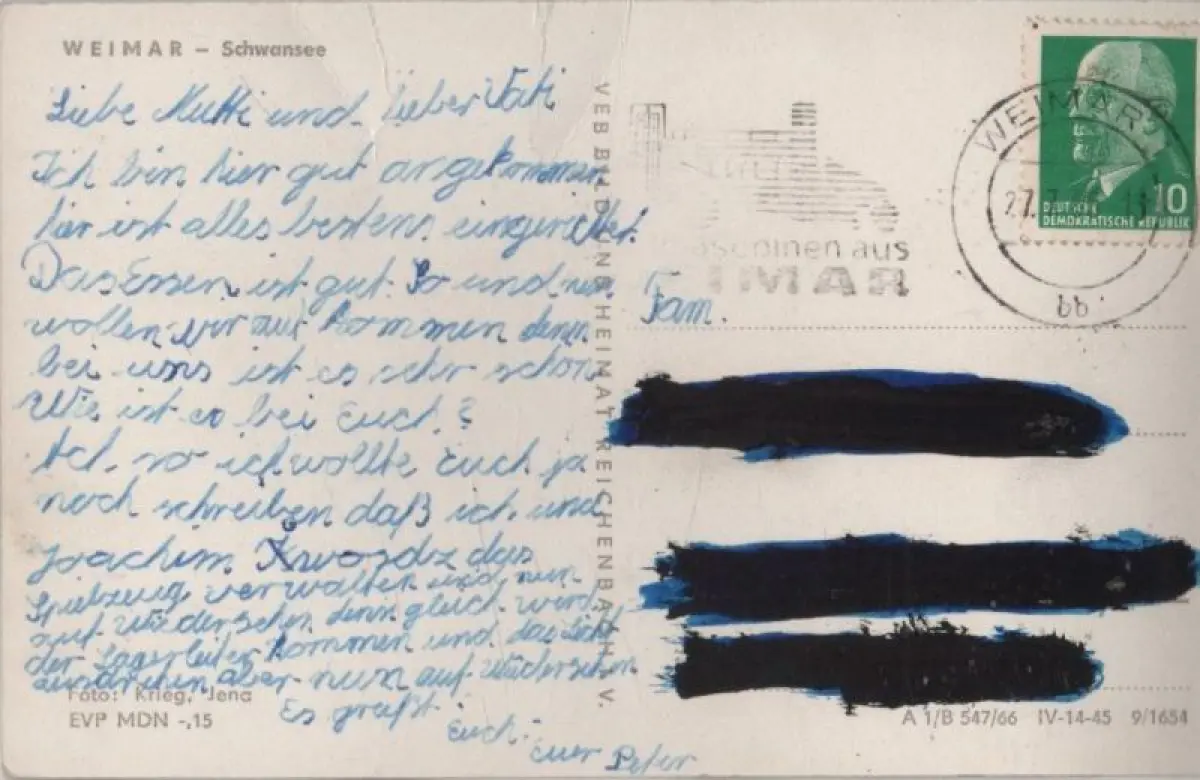 WEIMAR – Schwansee
Liebe Mutti und lieber Vati
Ich bin hier gut angekommen
hir ist alles bestens eingerichtet.
Das Essen ist gut. So und nun
wollen wir auf kommen denn
bei uns ist es sehr schön
Wie ist es bei Euch?
Ach, so ich wollte Euch ja
noch schreiben daß ich und
Joachim das
Spielzeug verwalten und nun
auf wiedersehen denn gleich wird
der Lagerleiter kommen und das Licht
aber nun auf wiedersehen
Es grüßt
Euch
Euer Peter
Foto: Krieg, Jena
EVP MDN -,15
VEB BILD UND HEIMAT REICHENBACH I. V.
aus
IMAR
WEIMAR
27.7
bb
10
DEUTSCHE
DEMOKRATISCHE REPUBLIK
Fam.
A 1/B 547/66 IV-14-45 9/1654